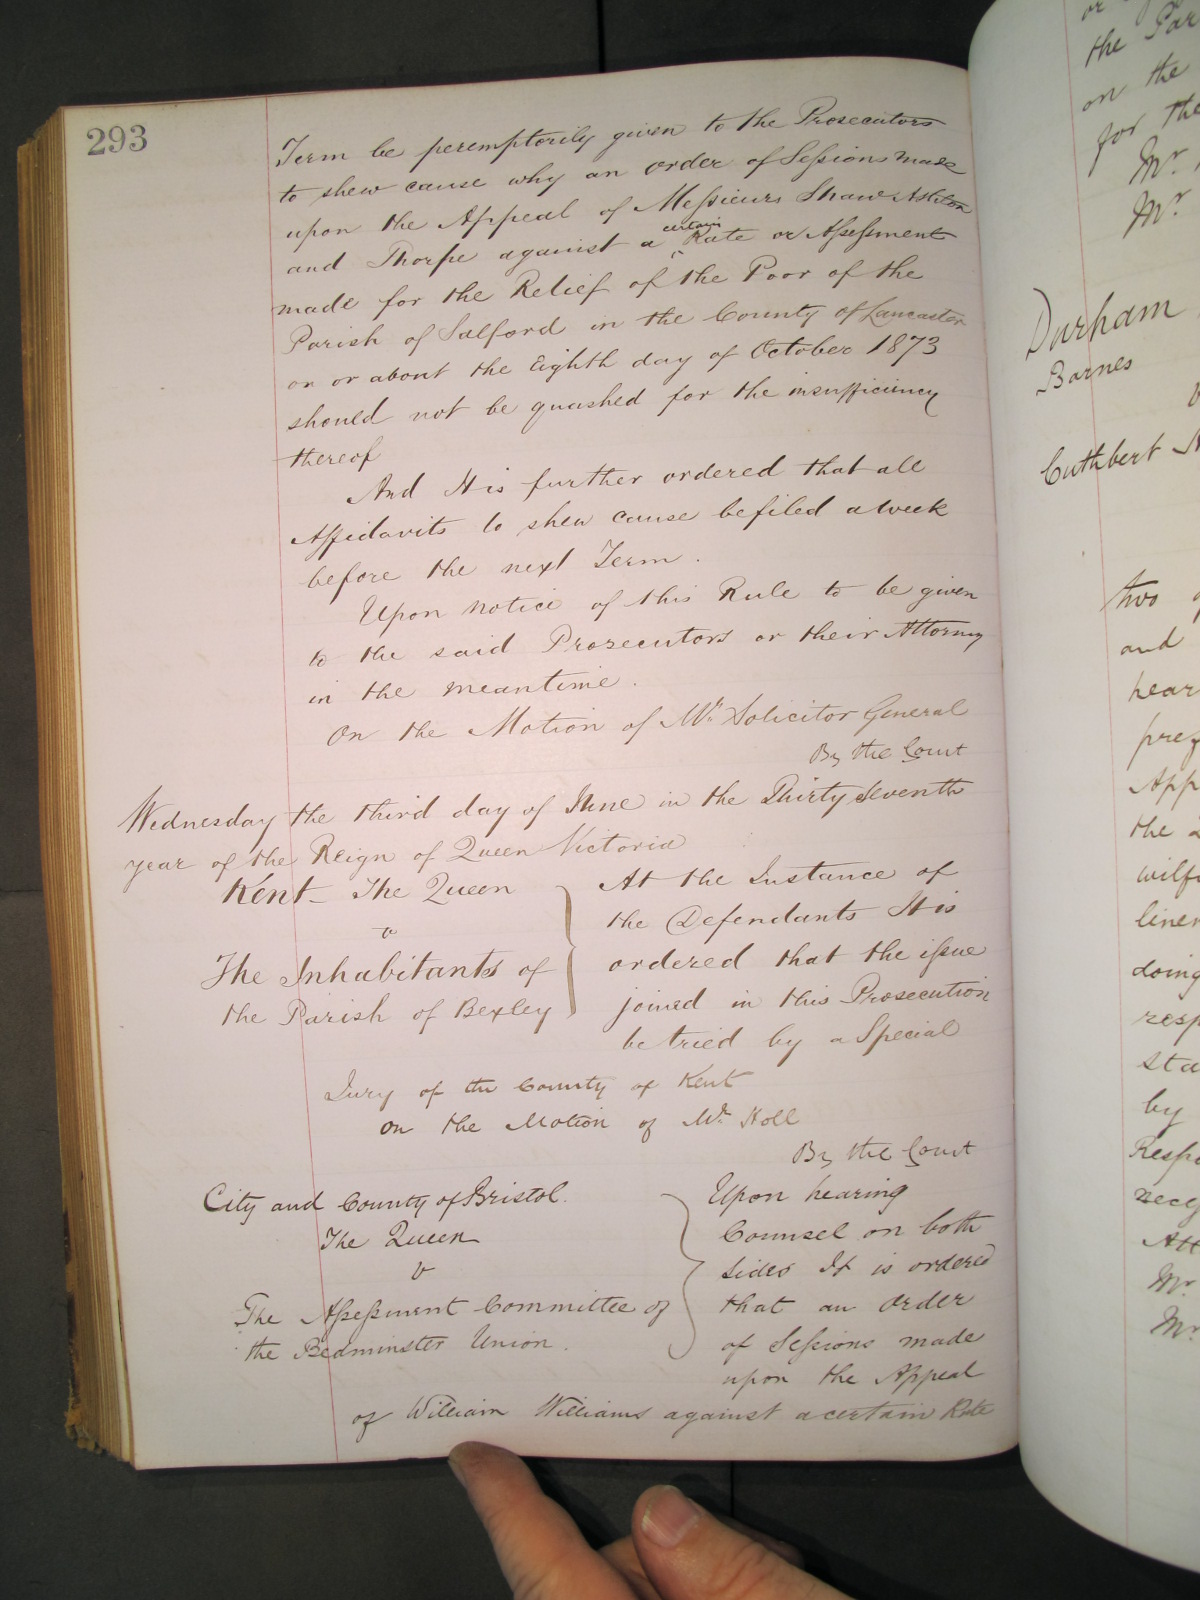 293
Term be peremptorily given to the Prosecutors
to shew cause why an order of Sessions made
upon the Appeal of Messieurs Shaw Ashton
certain
and Thorpe against a Rate or Assessment
made for the Relief of the Poor of the
Parish of Salford in the County of Lancaster
on or about the Eighth day of October 1873
should not be quashed for the insufficiency
thereof
And It is further ordered that all
Affidavits to shew cause be filed a week
before the next Term.
Upon notice of this Rule to be given
to the said Prosecutors or their Attorney
in the meantime.
On the Motion of Mr. Solicitor General
By the Court
Wednesday the third day of June in the Thirty Seventh
year of the Reign of Queen Victoria
Kent - The Queen
v
The Inhabitants of
the Parish of Bexley
At the Instance of
the Defendants It is
ordered that the issue
joined in this Prosecution
be tried by a Special
Jury of the County of Kent
on the Motion of Mr. Holl
By the Court
City and County of Bristol.
The Queen
v
The Assessment Committee of
the Bedminster Union.
Upon hearing
Counsel on both
sides It is ordered
that an order
of Sessions made
upon the Appeal
of William Williams against a certain Rate
or
the Par
on the
for the
Mr.
Mr
Durham
Barnes
Cuthbert
two
and
hear
App
the
wilf
liner
doing
resp
sta
by
Respo
nece
Att
Mr.
Mr